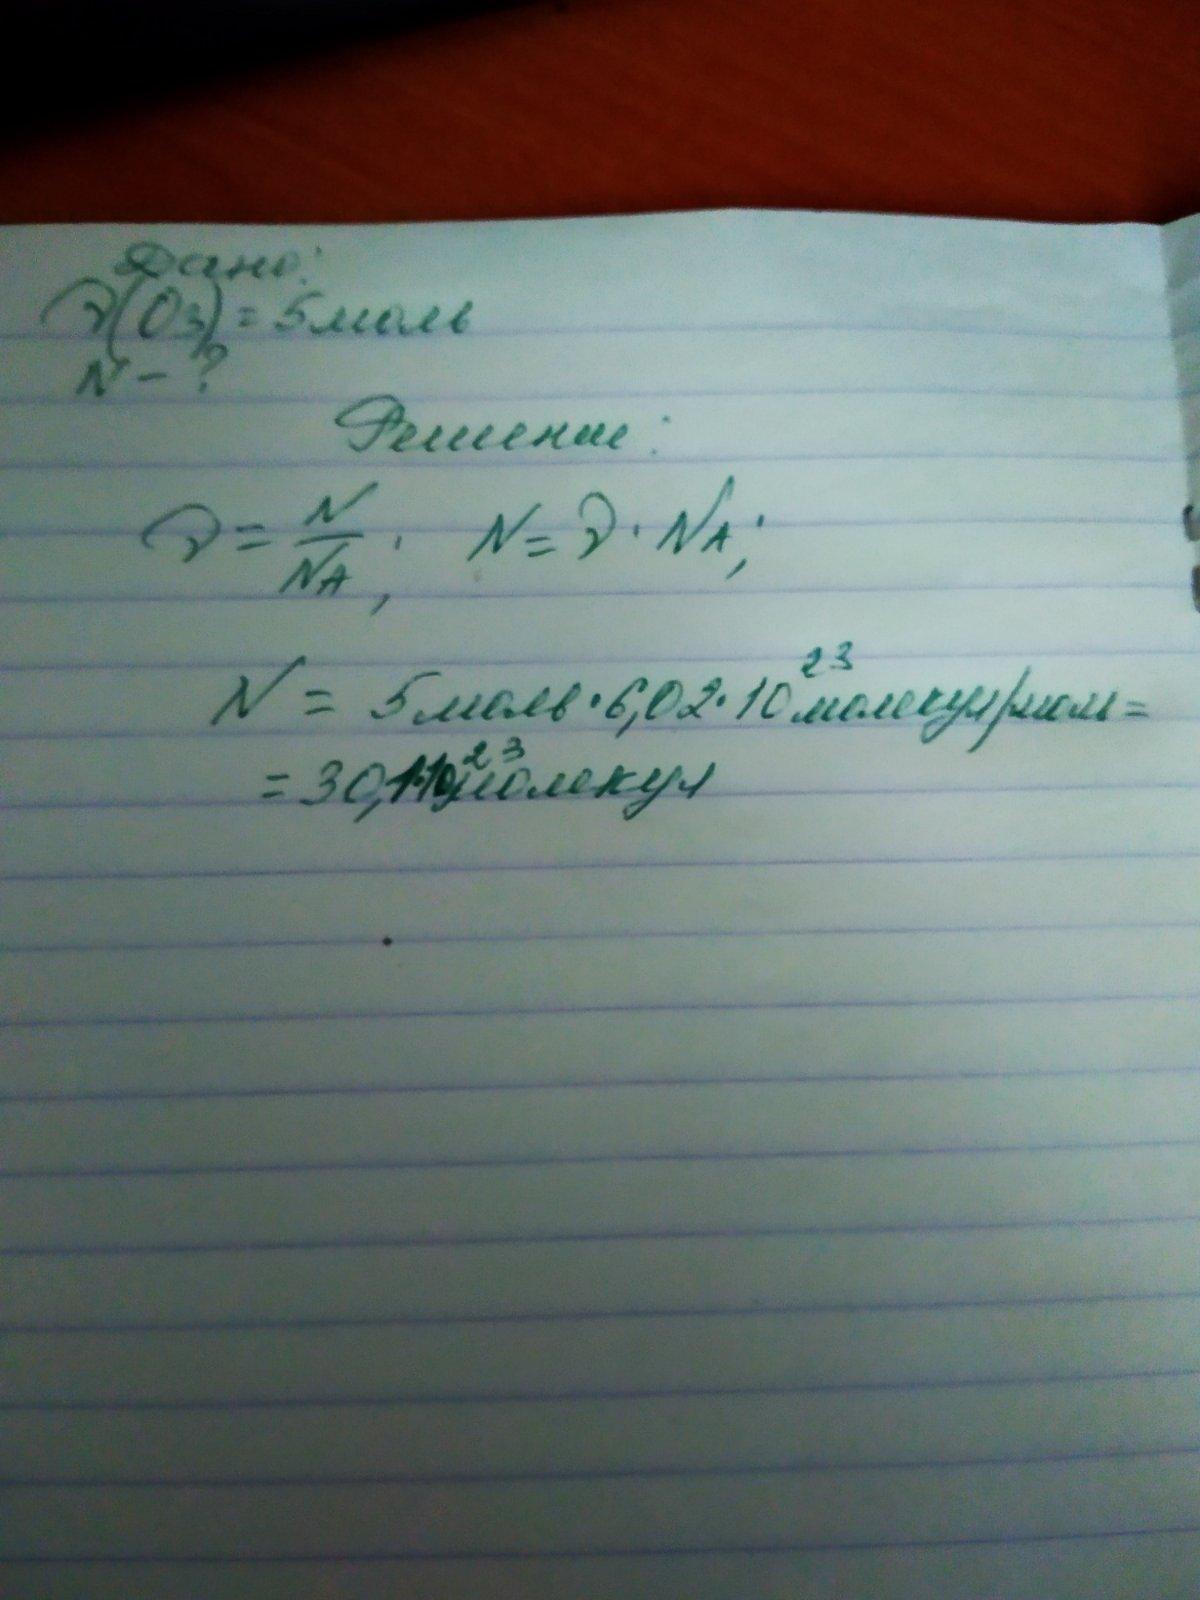 Дано:
ν(O₃) = 5 моль
N - ?
Решение:
ν = N/N_A; N = ν · N_A;
N = 5 моль · 6,02 · 10²³ молекул/моль =
= 30,1·10²³ молекул